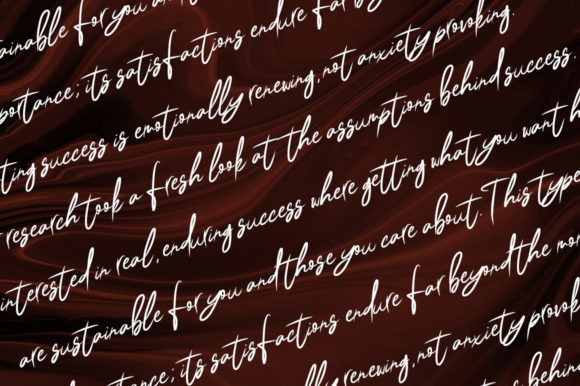 ainable for you and
portance; its satisfactions endure far
ting success is emotionally renewing, not anxiety provoking.
research took a fresh look at the assumptions behind success.
interested in real, enduring success where getting what you want h
are sustainable for you and those you care about. This type
portance; its satisfactions endure far beyond the mo
lly renewing, not anxiety provok
behind